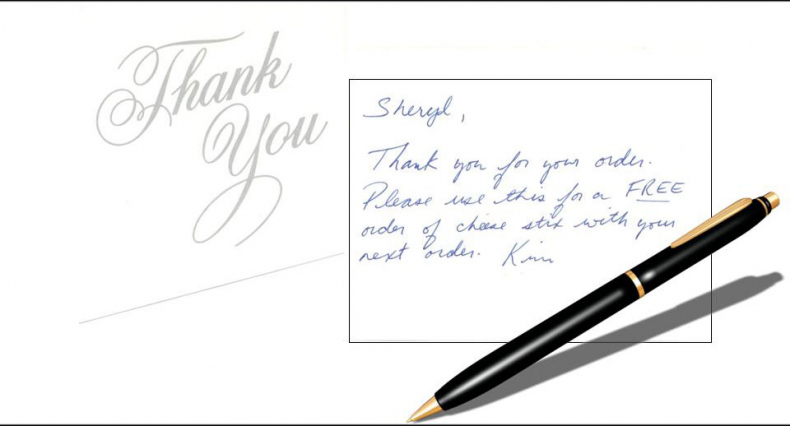 Thank
You
Sheryl,
Thank you for your order.
Please use this for a FREE
order of cheese stix with your
next order. Kim